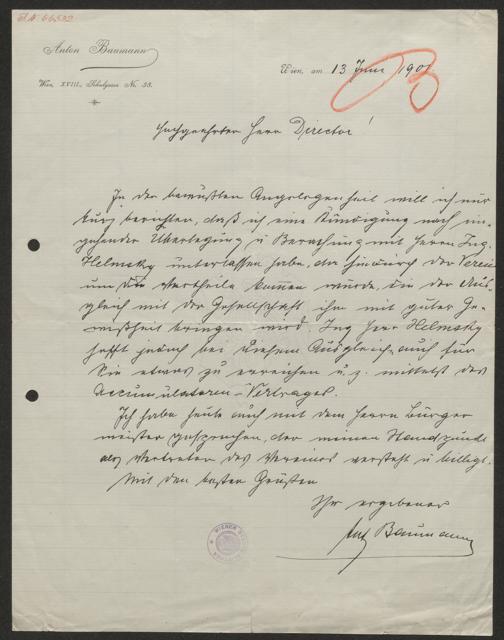 Anton Baumann
Wien, XVIII., Schulgasse No. 33.
Wien, am 13 Juni 190
Hochgeehrter Herr Director!
In der bewußten Angelegenheit will ich nur
kurz berichten, daß ich eine Kündigung nach ein-
gehender Überlegung u Berathung mit Herrn Ing.
Helmsky unterlassen habe, da hiedurch der Verein
um die Vortheile kommen würde, die der Aus-
gleich mit der Gesellschaft ihm mit guter Ge-
wißheit bringen wird. Ing Herr Helmsky
hofft jedoch bei diesem Ausgleich auch für
Sie etwas zu erreichen u. z. mittelst des
Accumulatoren-Vertrages.
Ich habe heute auch mit dem Herrn Bürger
meister gesprochen, der meinen Standpunkt
als Vertreter des Vereines versteht u billigt.
Mit den besten Grüßen
Ihr ergebener
Ant Baumann
WIENER